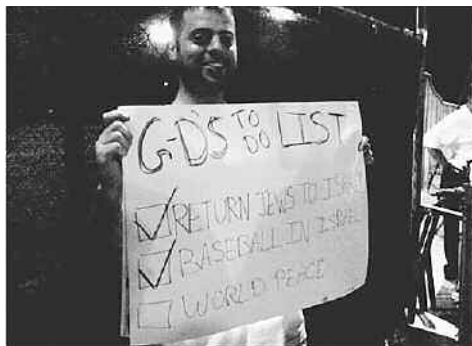 G-D'S TO DO LIST
RETURN JEWS TO ISRAEL
BASEBALL IN ISRAEL
WORLD PEACE